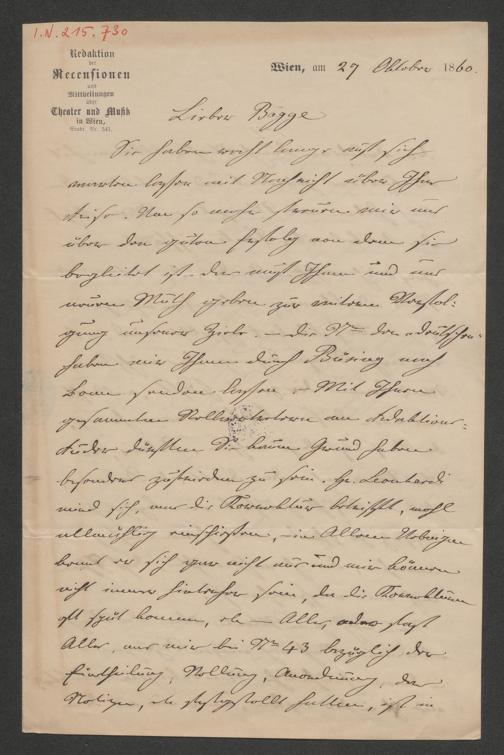 I.N. 215.730
Redaktion
der
Recensionen
und
Mittheilungen
über
Theater und Musik
in Wien,
Stadt Nr. 541.
Wien, am 27 Oktober 1860.
Lieber Bagge
Sie haben recht lange auf sich
warten lassen mit Nachricht über Ihre
Reise. Um so mehr freuen wir uns
über den guten Erfolg von dem sie
begleitet ist. Der muß Ihnen und uns
neuen Muth geben zur weitern Verfol-
gung unserer Ziele. – Die Nrn der deutschen
haben wir Ihnen durch Büsing nach
Bonn senden lassen – Mit Ihrem
gesammten Stellvertretern am Redaktions-
Ruder dürften Sie kaum Grund haben
besonders zufrieden zu sein. Hr. Leonhardi
wird sich, was die Korrektur betrifft, wohl
allmählig einschießen, – in Allem Uebrigen
kennt er sich gar nicht aus und wir können
nicht immer hinterher sein, da die Korrekturen
oft spät kommen, etc – Alles, fast
Alles, was wir bei Nro 43 bezüglich der
Eintheilung, Stellung, Anordnung, der
Notizen, etc festgestellt hatten, ist in